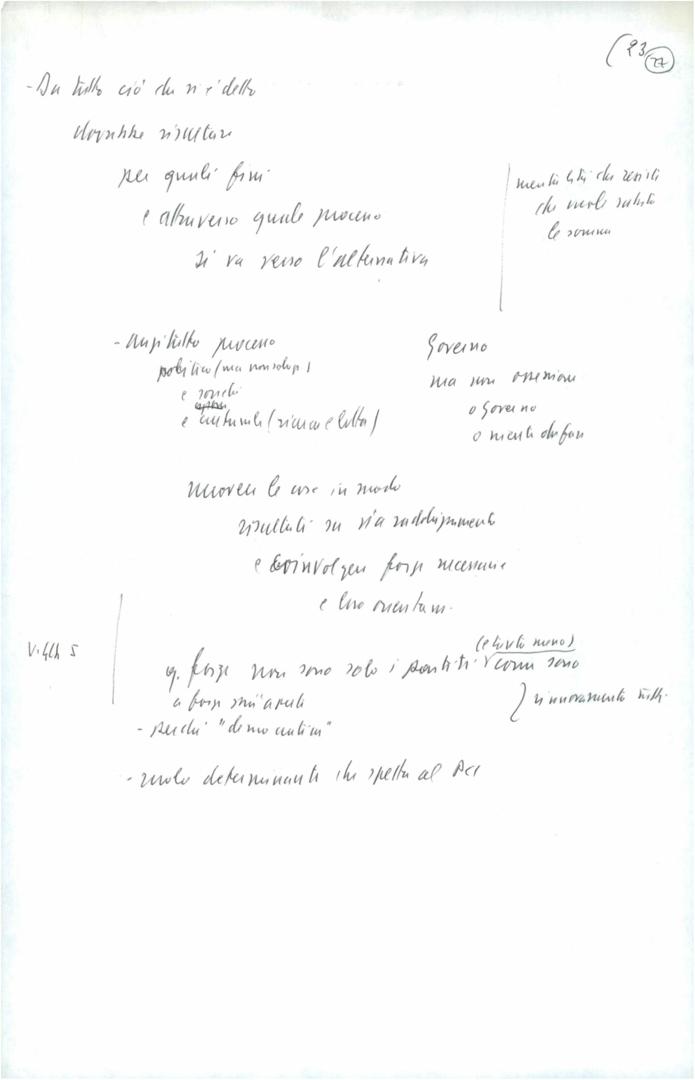 (23 77
- Da tutto ciò che si è detto
dovrebbe risultare
per quali fini
e attraverso quale processo
si va verso l'alternativa
mentalità che resisti
che vuole subito
le somma
- Anzitutto processo
politico (ma non solo p)
e sociale
e culturale (ricerca e lotta)
Governo
ma non ossessione
o Governo
o niente da fare
muovere le cose in modo
risultati su via raddrizzamento
e coinvolgere forze necessarie
e loro orientam.
V. fgh 5
q. forze non sono solo i partiti come sono
(e tanto meno)
a forze
} rinnovamento tutti
- perché "democratica"
- ruolo determinante che spetta al PCI